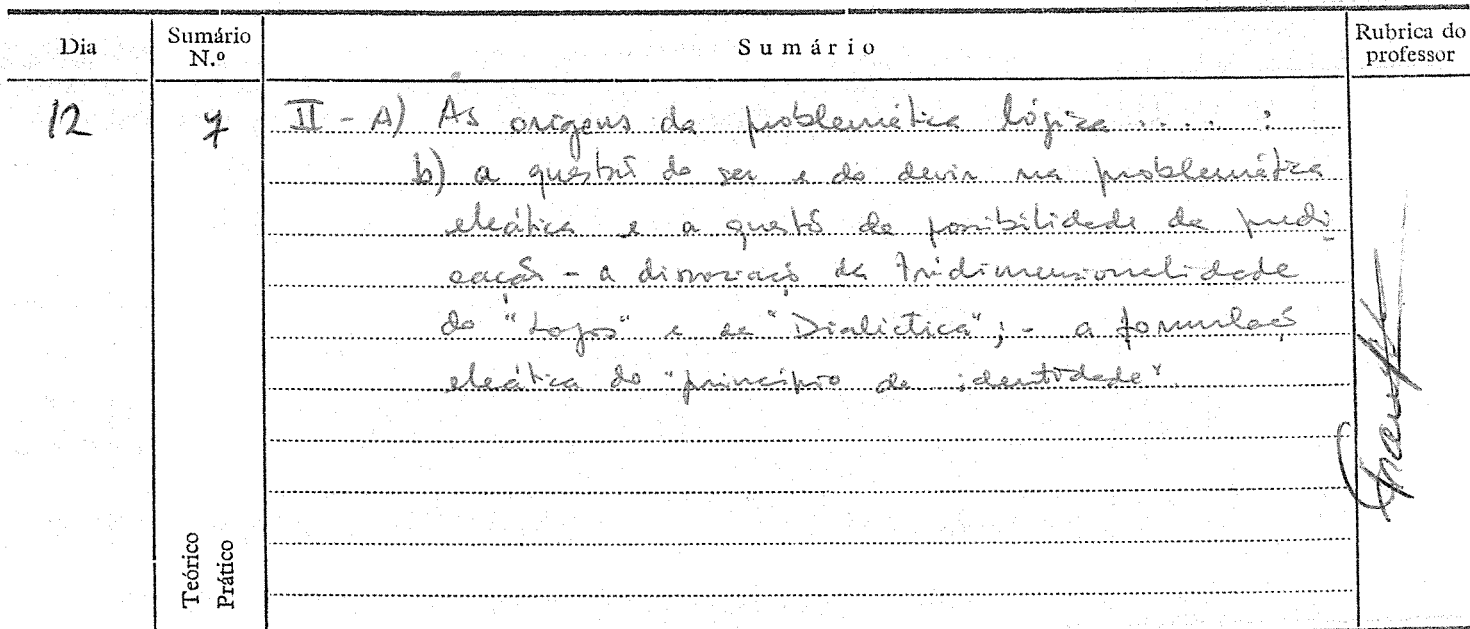 Dia
Sumário N.º
Sumário
Rubrica do professor
12
7
II - A) As origens da problemática lógica .... :
b) a questão do ser e do devir na problemática
eleática e a questão da possibilidade da predi-
cação - a dissociação da tridimensionalidade
do "Logos" e da "Dialéctica"; - a formulação
eleática do "princípio de identidade".
Teórico
Prático